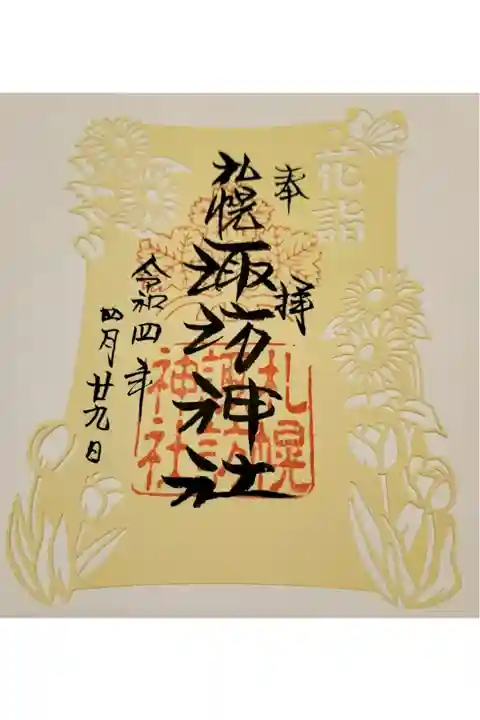 花詣
奉拝
札幌諏訪神社
札幌
諏訪
神社
令和四年
四月廿九日